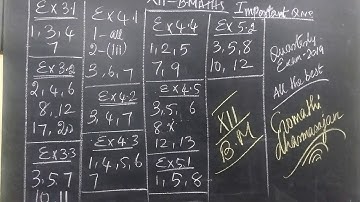 XII - B.MATHS Important Que
Ex 3.1
1, 3, 4
7
Ex 3.2
2, 4, 6
8, 12
17, 20
Ex 3.3
3, 5, 7
10, 11
Ex 4.1
1- all
2-(iii)
3, 6, 7
Ex 4.2
3, 4, 7
Ex 4.3
1, 4, 5, 6
7
Ex 4.4
1, 2, 5
7, 9
Ex 4.5
3, 5, 6
8
12, 13
Ex 5.1
1, 5, 8
Ex 5.2
3, 5, 8
10, 12
XII
B.M
Quarterly
Exam-2019
All the best
Gomathi
dharmarajan